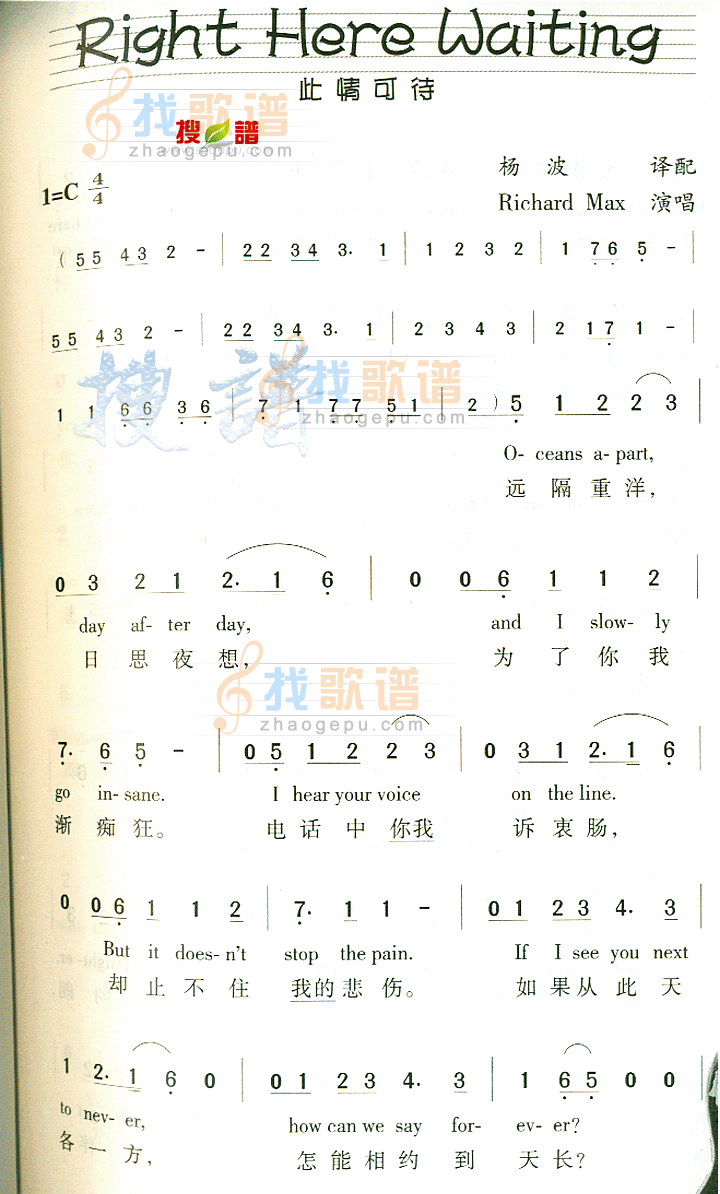 Right Here Waiting
此情可待
找歌谱
搜谱
zhaogepu.com
杨波 译配
1=C 4/4
Richard Max 演唱
( 5 5 4 3 2 - | 2 2 3 4 3. 1 | 1 2 3 2 | 1 7 6 5 - |
5 5 4 3 2 - | 2 2 3 4 3. 1 | 2 3 4 3 | 2 1 7 1 - |
搜谱 找歌谱
1 1 6 6 3 6 | 7 1 7 7 5 1 | 2 ) 5 1 2 2 3 |
zhaogepu.com
O- ceans a- part,
远隔重洋,
0 3 2 1 2. 1 6 | 0 0 6 1 1 2 |
day af- ter day, and I slow- ly
日思夜想, 为了你我
找歌谱
zhaogepu.com
7. 6 5 - | 0 5 1 2 2 3 | 0 3 1 2. 1 6 |
go in- sane. I hear your voice on the line.
渐痴狂。 电话中你我 诉衷肠,
0 0 6 1 1 2 | 7. 1 1 - | 0 1 2 3 4. 3 |
But it does- n't stop the pain. If I see you next
却止不住 我的悲伤。 如果从此天
1 2. 1 6 0 | 0 1 2 3 4. 3 | 1 6 5 0 0 |
to nev- er, how can we say for- ev- er?
各一方, 怎能相约到 天长?